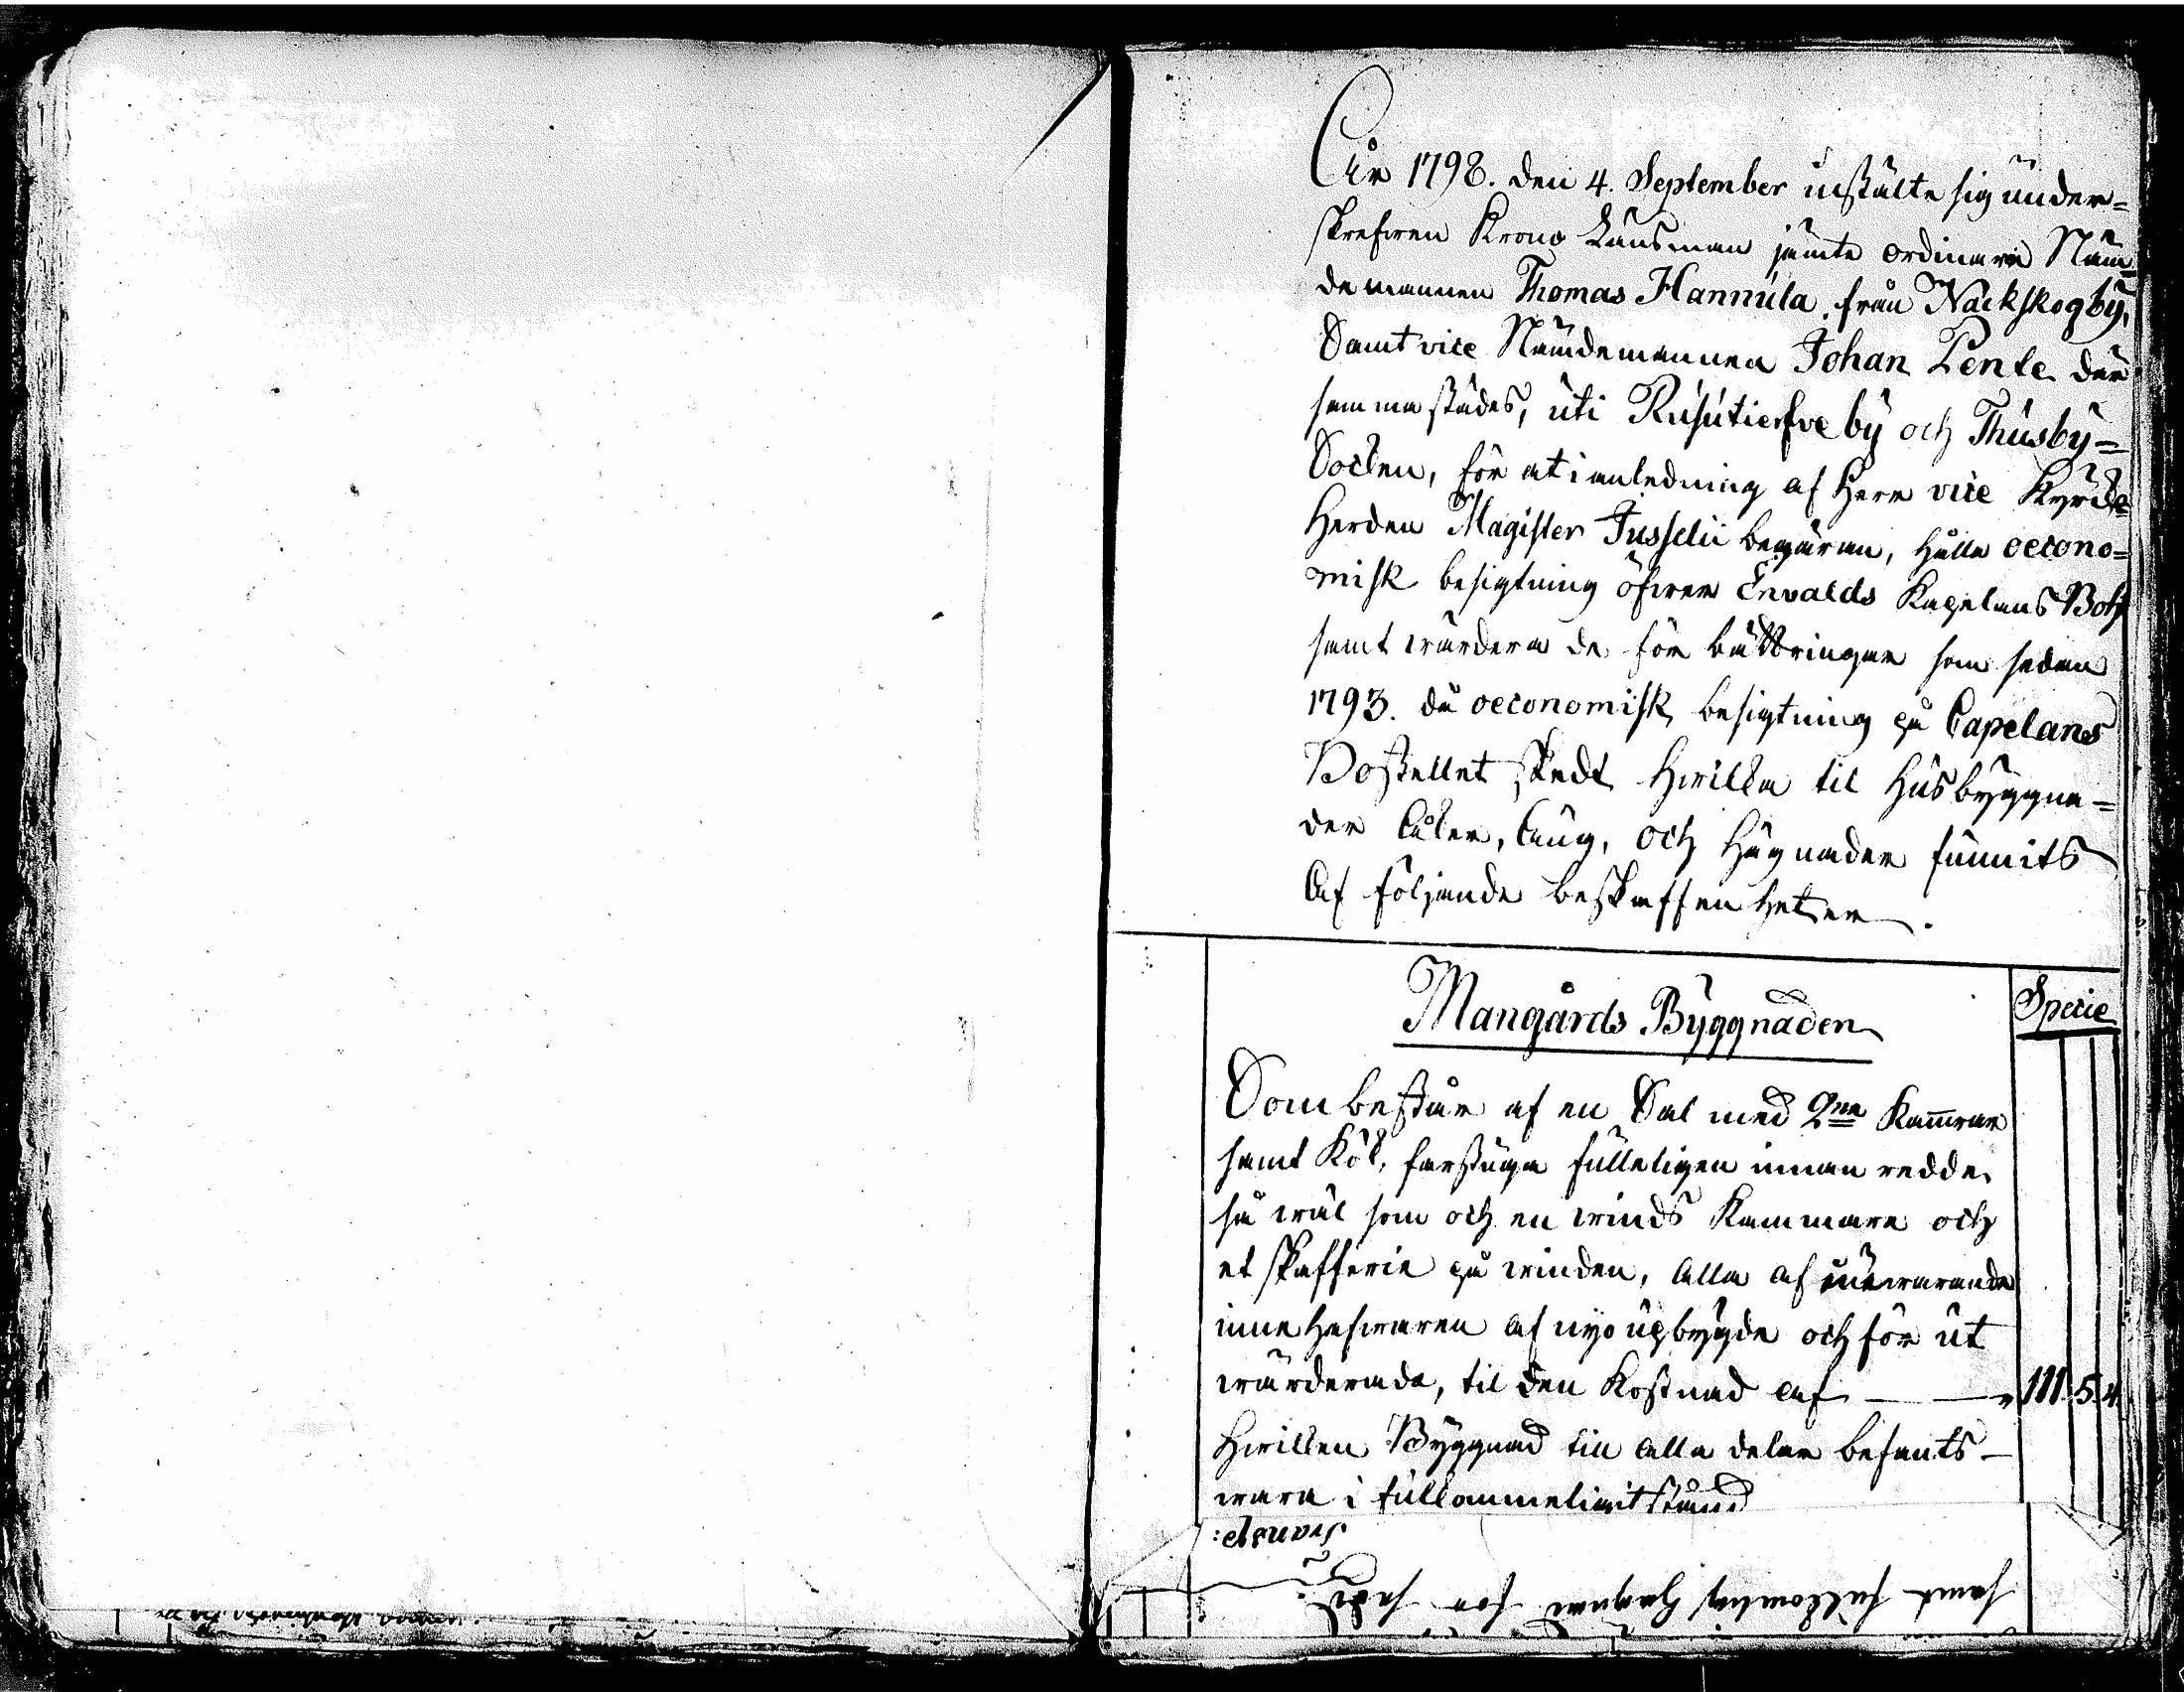 År 1798. den 4. September instälte sig under=
skrefwen Krono Länsman jämte ordinarie Näm=
demannen Thomas Hannula från Näckskogby,
Samt vice Nämdemannen Johan Pente där
sammastädes, uti Rusutierfve by och Thusby=
Socken, för at i anledning af Herr vice Kyrcko=
Herden Magister Jusselii begäran, hålla oecono=
misk besigtning öfwer Envalds Kapelans Bohl
samt wärdera de förbättringar som sedan
1793. då oeconomisk besigtning på Capelans
Bostellet skedt hwilka til Husbyggna=
der Åker, Äng, och Hägnader funnits
Af följande beskaffenheter.
Mangårds Byggnaden
Specie
Som består af en Sal med 2ne Kamrar
samt Kök, farstuga fulleligen innanredde
så wäl som och en winds Kammare och
et skafferie på winden, alla af nuwarande
innehafwaren af nyo upbygde och för ut
wärderade, til den Kostnad af — 111. 5. 4.
Hwilken Byggnad till alla delar befants
wara i fullommeligit stånd
samt fullkomligt